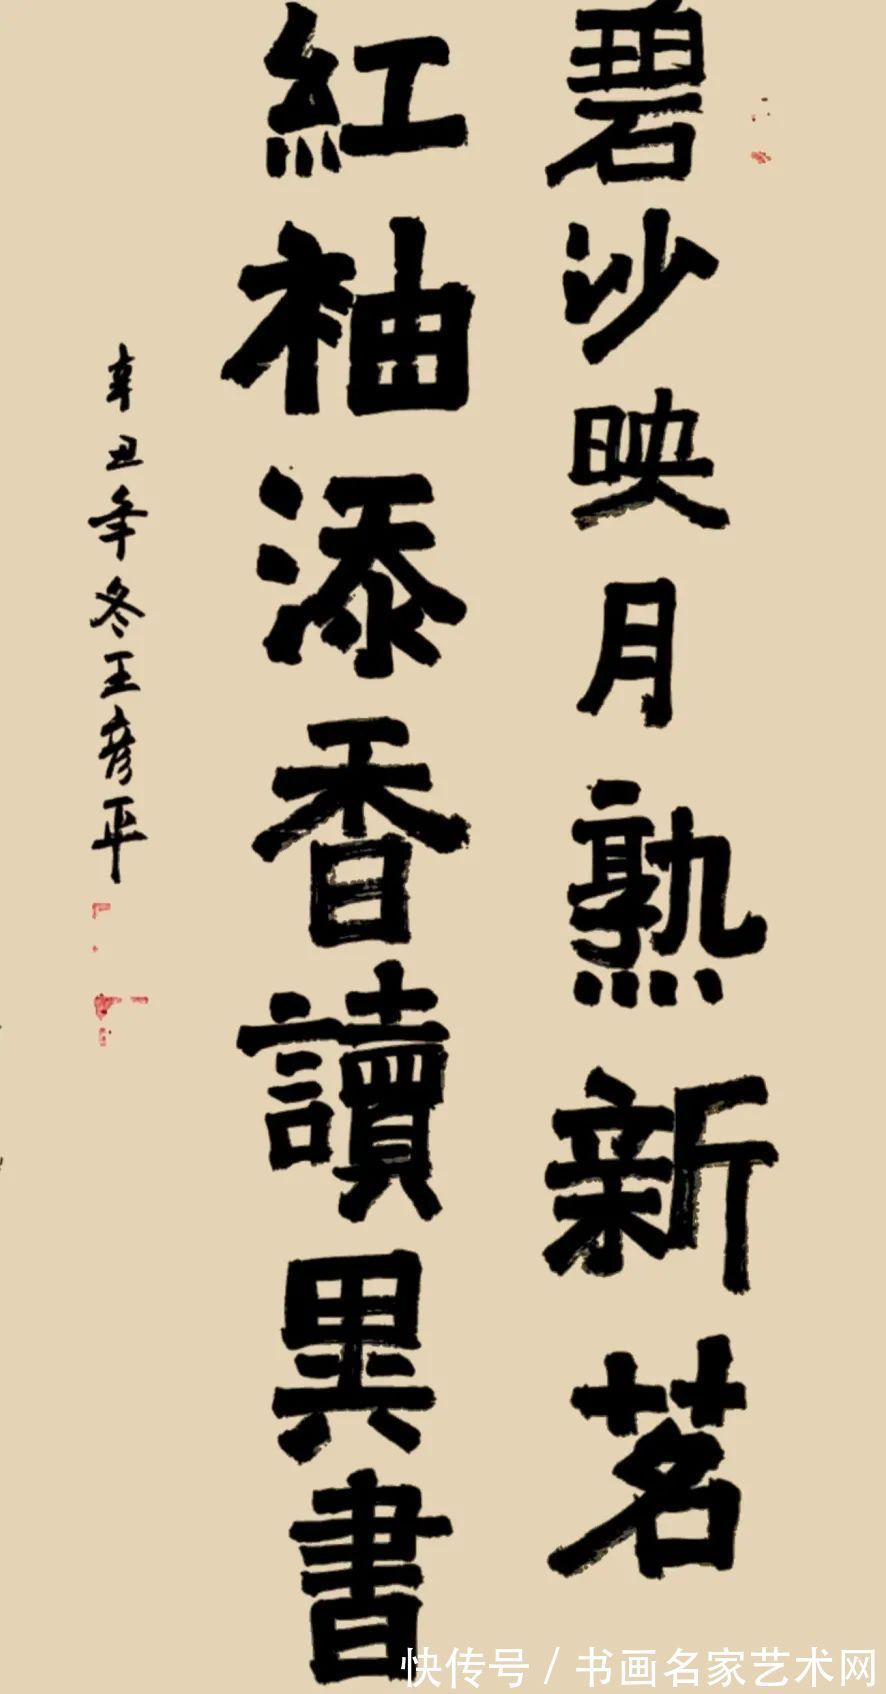 碧沙映月熟新茗
紅袖添香讀異書
辛丑年冬王彦平
快传号 / 书画名家艺术网